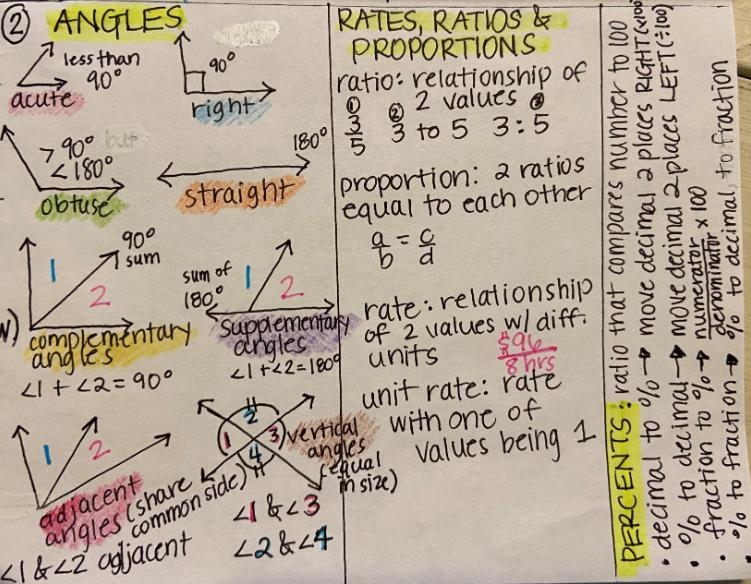 ② ANGLES
less than
90°
acute
90°
right
> 90° but
< 180°
obtuse
180°
straight
90°
sum
1
2
complementary
angles
∠1 + ∠2 = 90°
sum of
180°
1
2
supplementary
angles
∠1+∠2=180°
1
2
adjacent
angles (share
common side)
∠1 & ∠2 adjacent
2
1
3
4
vertical
angles
(equal
in size)
∠1 & ∠3
∠2 & ∠4
RATES, RATIOS &
PROPORTIONS
ratio: relationship of
2 values
① 3/5 ② 3 to 5 ③ 3:5
proportion: 2 ratios
equal to each other
a/b = c/d
rate: relationship
of 2 values w/ diff.
units
$96/8 hrs
unit rate: rate
with one of
values being 1
PERCENTS: ratio that compares number to 100
• decimal to % → move decimal 2 places RIGHT (x100)
• % to decimal → move decimal 2 places LEFT (÷100)
• fraction to % → numerator/denominator x 100
• % to fraction → % to decimal, to fraction